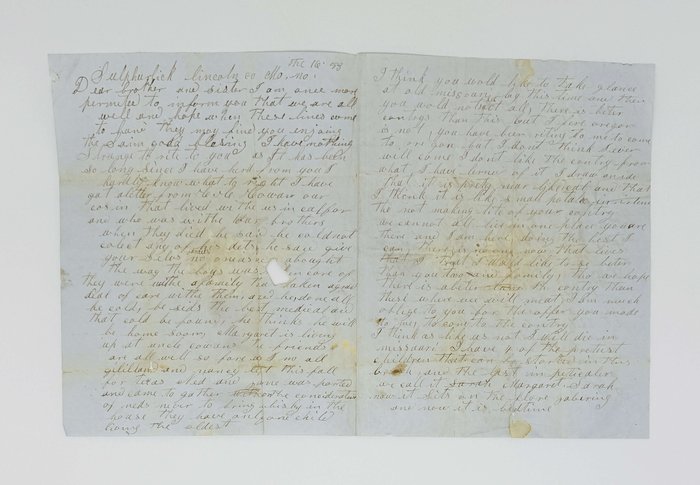 the 16 53
Sulphurlick Lincoln co Mo. mo.
Dear brother and sister I am once more
permited to inform you that we are all
well and hope when these lines come
to hand they may find you enjoying
the Same I have nothing
Strange to rite to you as it has been
so long since I have herd from you I
hardly know what to right I have
got a letter from Cowan our
cosin that lived with us in
and who was withe your brothers
when they died he sais he could not
colect any of his dets he said give
your Selvs no about
the way the boys was taken care of
they were withe a family that taken a great
deal of care withe them and he done all
he cold besids the best medical aid
that cold be found he thinks he will
be home soon Margaret is living
up at uncle Cowans the friends
are all well so fare as I no all
and nancy left this fall
for texas and was parted
and came to gather on the consideration
of neds never to bring whisky in the
house they have only one child
living the oldest
I think you wold like to take a glance
at old missouri by this time and then
you wold not at all, there is beter
contrys than this but I dont
is not, you have been riting to me to come
to oregon but I dont think I ever
will come I dont like the contry from
what I have lurnd of it
that it is and that
I think it is like a small potato
the not making lite of your contry
we cannot all live in one place you are
there and I am here doing the best I
can there is no one now that lives
that I that I wold like to se beter
than you and family tho we hope
there is a beter contry than
these where we will meat I am much
oblige to you for the offer you made
to me to come to the contry
I think as like as not I will die in
missouri I have 7 of the pretiest
children that can be started in this
and the last in peticular
we call it Sarah Margaret Sarah
now it sits on the flore
and now it is bedtime